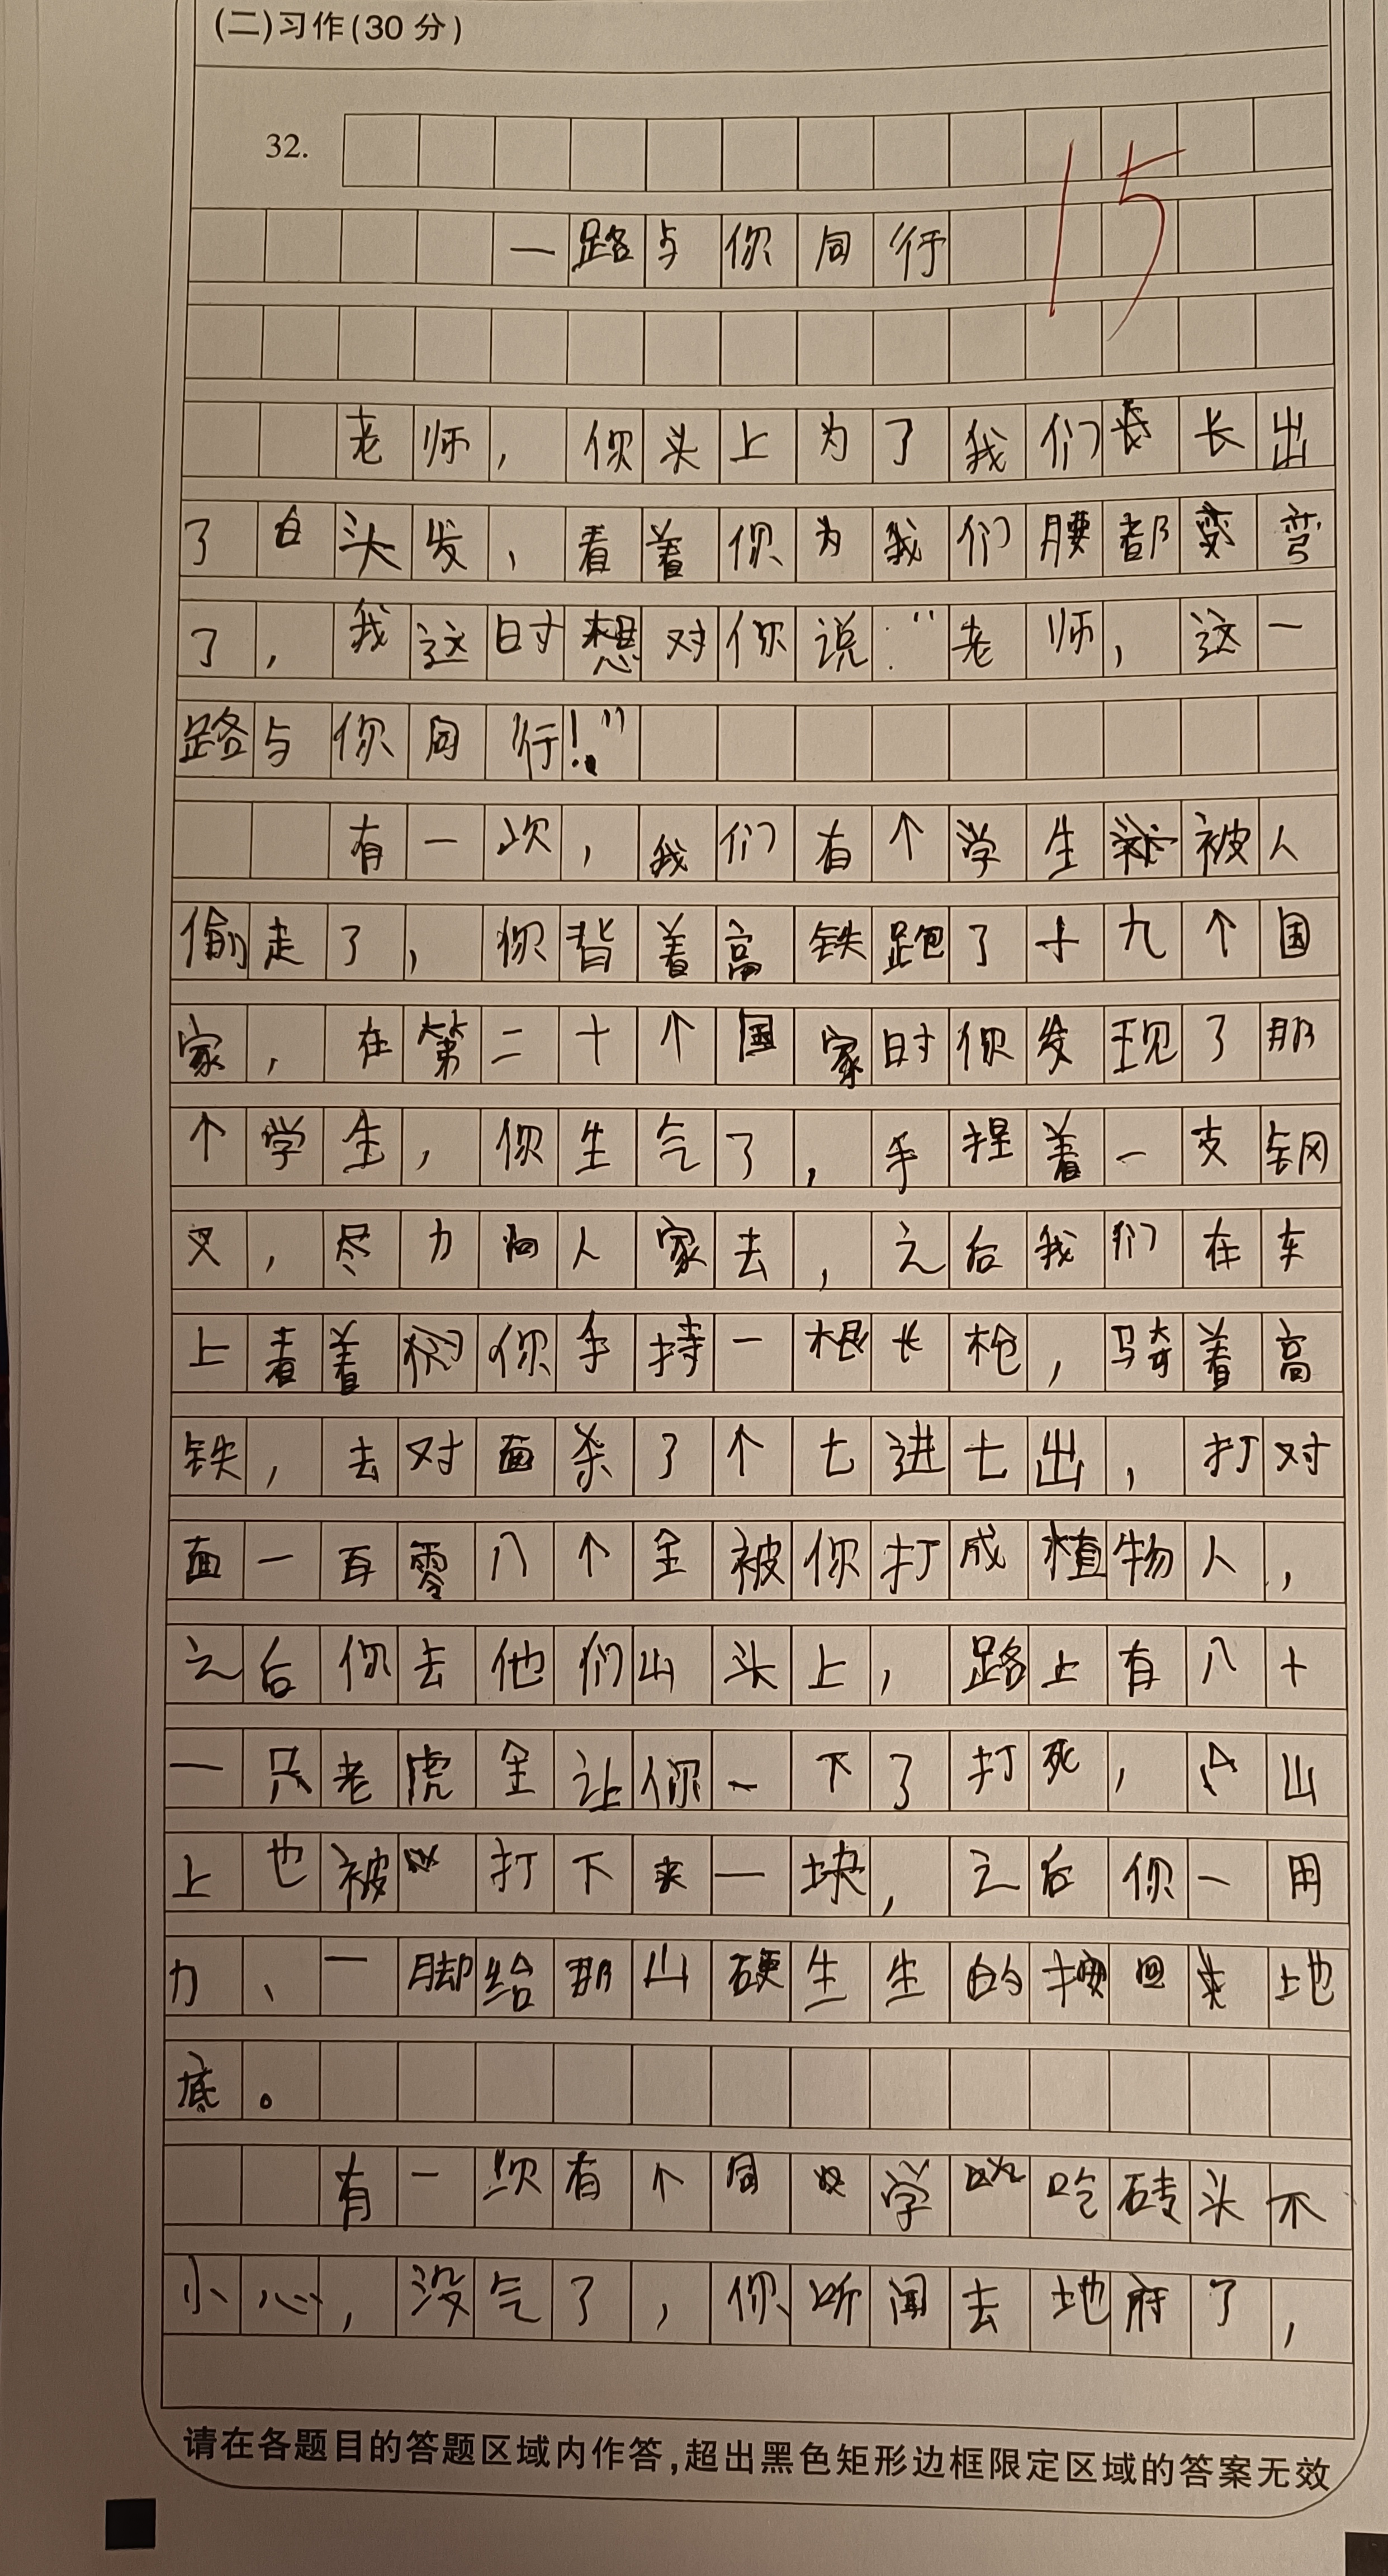 (二)习作(30分)
32.
15
一路与你同行
老师,你头上为了我们长长出
了白头发,看着你为我们腰都变弯
了,我这时想对你说:"老师,这一
路与你同行!"
有一次,我们有个学生被人
偷走了,你背着高铁跑了十九个国
家,在第二十个国家时你发现了那
个学生,你生气了,手捏着一支钢
叉,尽力向人家去,之后我们在车
上看着你手持一根长枪,骑着高
铁,去对面杀了个七进七出,打对
面一百零八个全被你打成植物人,
之后你去他们山头上,路上有八十
一只老虎全让你一下了打死,山
上也被打下来一块,之后你一用
力、一脚给那山硬生生的按回来地
底。
有一次有个同学吃砖头不
小心,没气了,你听闻去地府了,
请在各题目的答题区域内作答,超出黑色矩形边框限定区域的答案无效